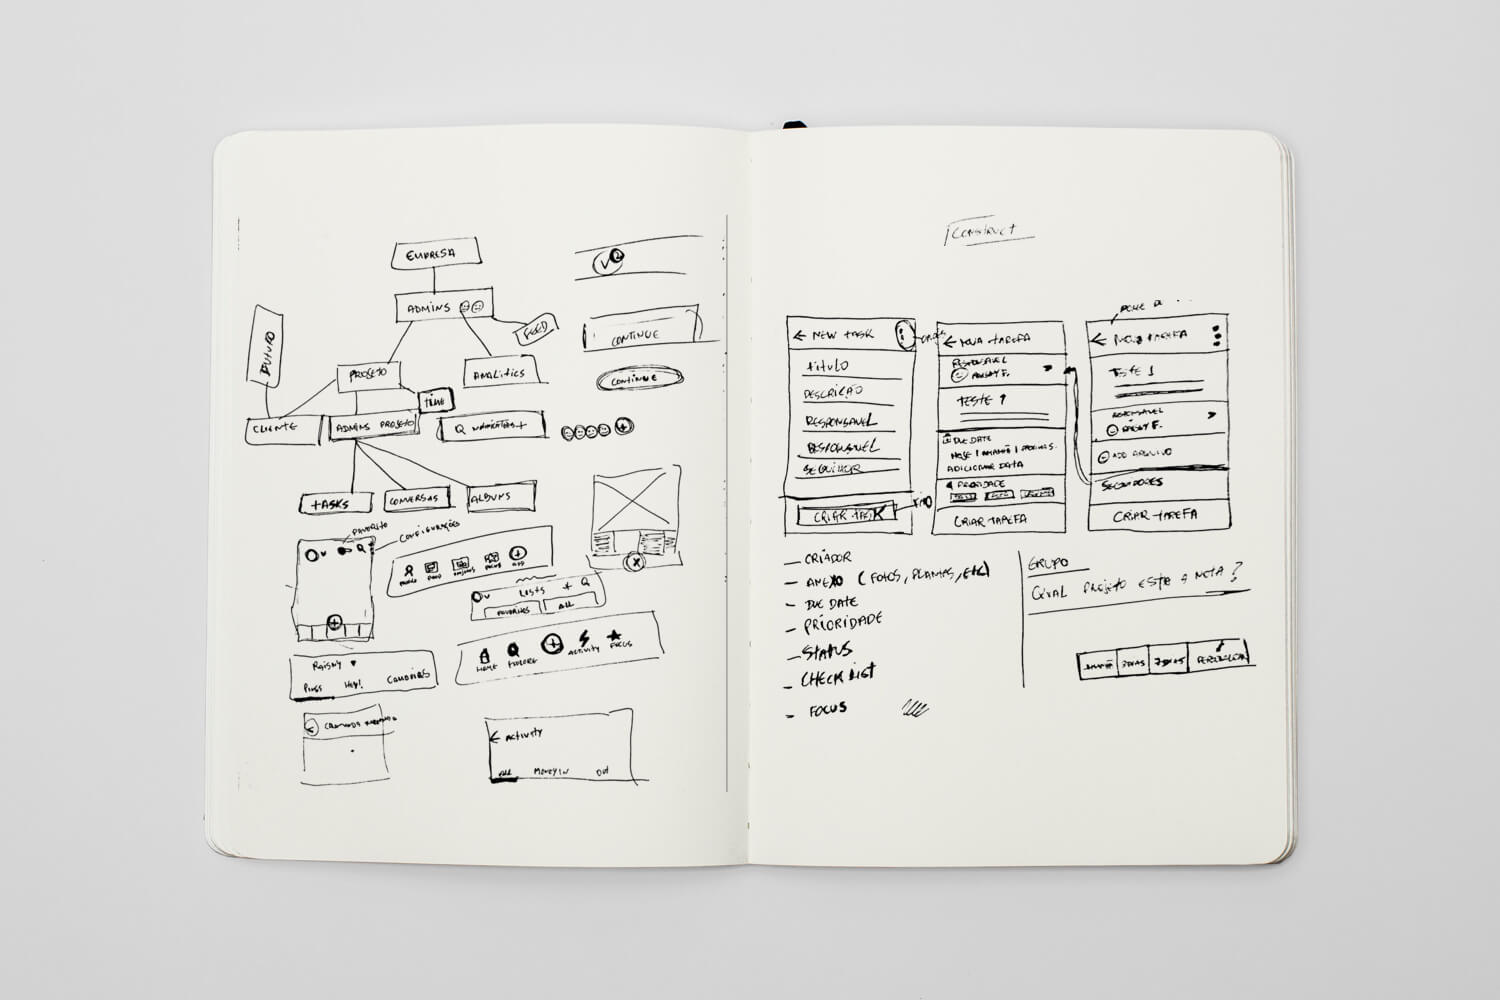 EMPRESA
ADMINS
FEED
FUTURO
PROJETO
ANALITICS
TIME
CLIENTE
ADMINS PROJETO
TASKS
CONVERSAS
ALBUNS
CONTINUE
CONTINUE
FAVORITO
CONFIGURAÇÕES
FEED
ADD
LISTS + Q
FAVORITES
ALL
HOME
EXPLORE
ACTIVITY
FOCUS
Hey!
← ACTIVITY
ALL
MONEY IN
OUT
CONSTRUCT
← NEW TASK
TITULO
DESCRIÇÃO
RESPONSAVEL
RESPONSAVEL
SEGUIDOR
CRIAR TASK
← NOVA TAREFA
RESPONSAVEL
TESTE 1
DUE DATE
ADICIONAR DATA
PRIORIDADE
CRIAR TAREFA
← NOVA TAREFA
TESTE 1
RESPONSAVEL
ADD ARQUIVO
SEGUIDORES
CRIAR TAREFA
- CRIADOR
- ANEXO (FOTOS, PLANTAS, ETC)
- DUE DATE
- PRIORIDADE
- STATUS
- CHECK LIST
- FOCUS
GRUPO
QUAL PROJETO ESTÁ A NOTA?
3 DIAS
7 DIAS